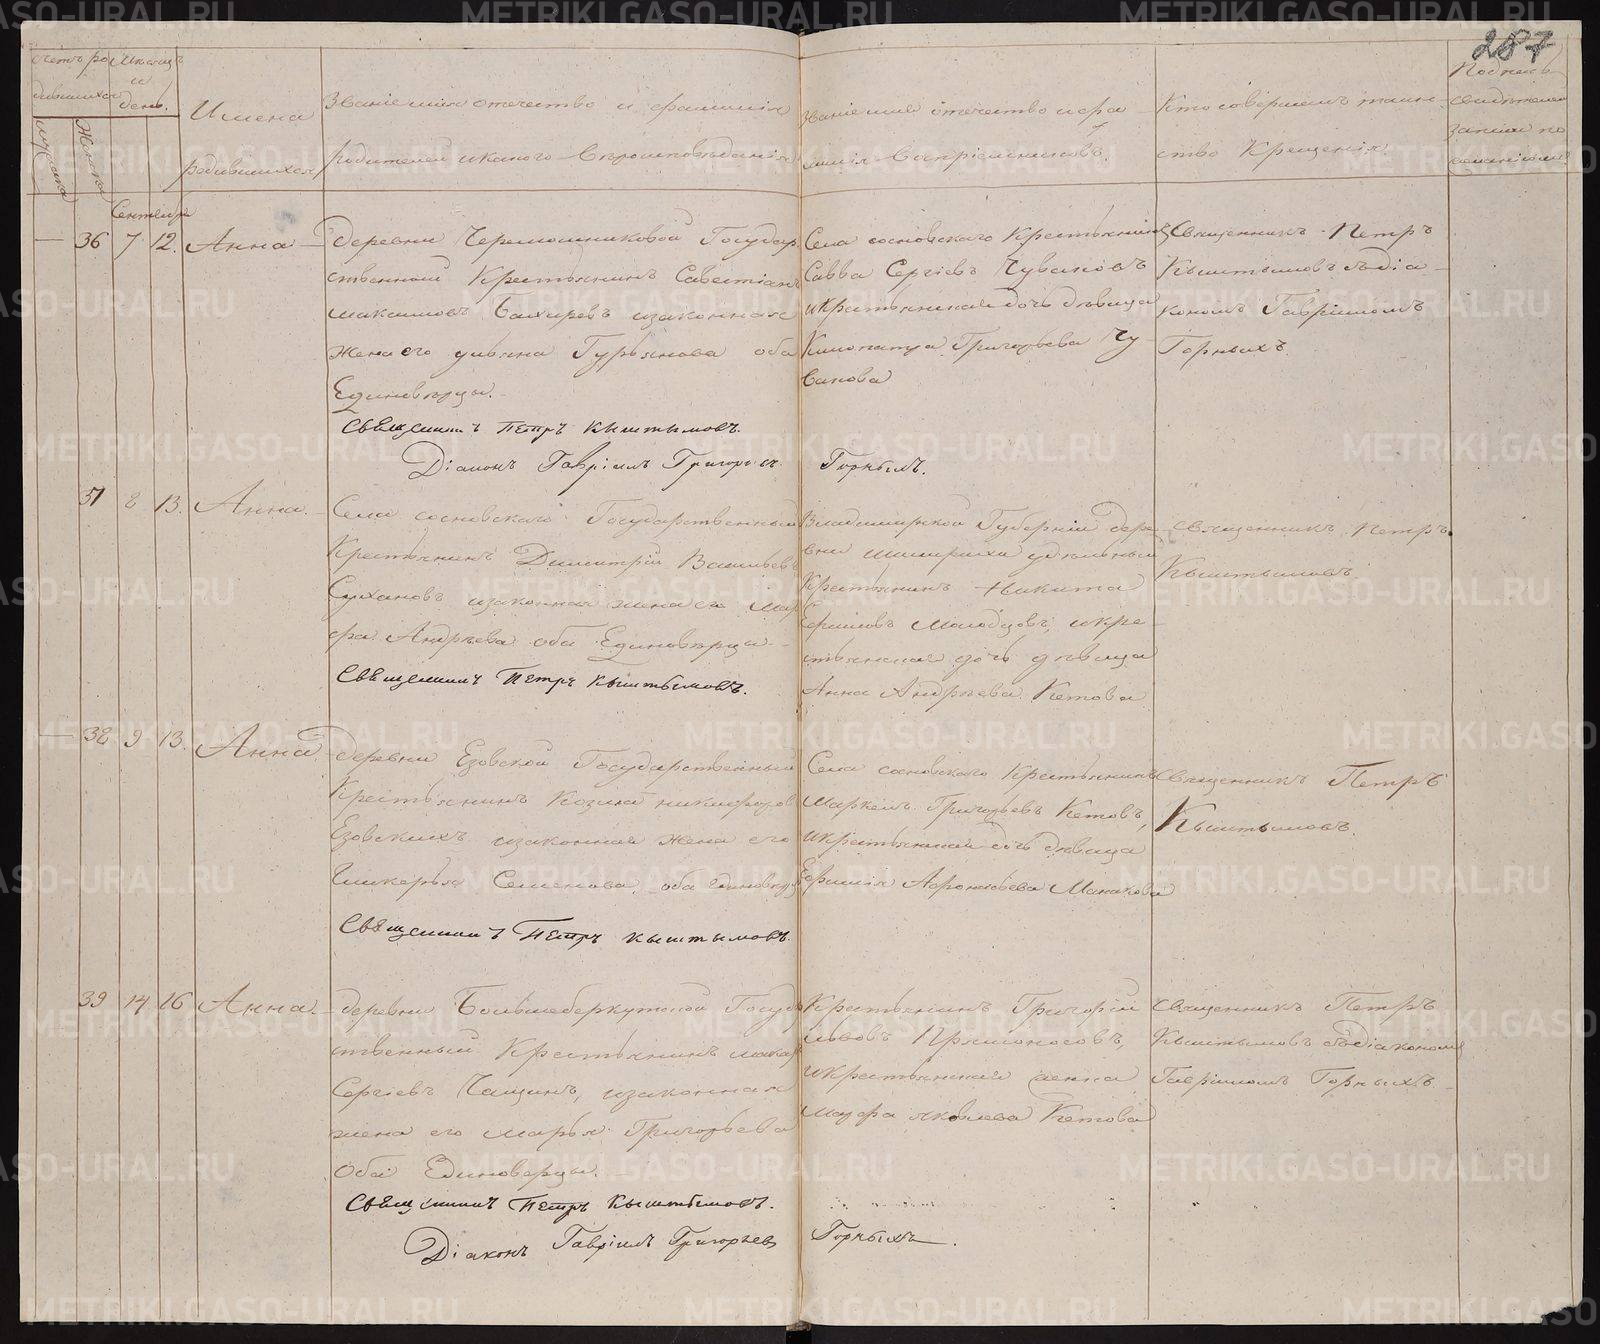 287
Счетъ ро
дившихся
мужска
Женска
Мѣсяцъ
и
день.
Имена
родившихся
Званіе имя отечество и фамилія
родителей и какого Вѣроисповѣданія
Званіе имя отечество и фа
милія Воспріемниковъ.
Кто совершалъ таин-
ство Крещенія
Подпись
свидѣтелей
записи по
желанію
Сентября
36 7 12. Анна
деревни Черемошниковой Государ
ственный Крестьянинъ Савестіанъ
Максимовъ Бахиревъ изаконная
жена его Ульяна Гурьянова оба
Единовѣрцы.
Священникъ Петръ Кыштымовъ.
Діаконъ Гавріилъ Григорьевъ Горныхъ.
Села сосновскаго Крестьянинъ
Савва Сергѣевъ Чувановъ
икрестьянская дочь дѣвица
Клиопатра Григорьева Чу
ванова
Священникъ Петръ
Кыштымовъ съдіа
кономъ Гавріиломъ
Горныхъ
37 8 13. Анна.
Села сосновскаго Государственный
Крестьянинъ Димитрій Васильевъ
Сухановъ изаконная жена его Мар
фа Андрѣева оба Единовѣрцы
Священникъ Петръ Кыштымовъ.
Владимирской Губерніи дере
вни удѣльный
Крестьянинъ Никита
Ефимовъ Молодцовъ, икре-
стьянская дочь дѣвица
Анна Андрѣева Кетова
священникъ Петръ
Кыштымовъ
38 9 13. Анна
деревни Езовской Государственный
Крестьянинъ Козма никифоровъ
Езовскихъ изаконная жена его
Гликерья Семенова, оба единовѣр
Священникъ Петръ Кыштымовъ.
Села сосновскаго Крестьянинъ
Маркелъ Григорьевъ Кетовъ,
икрестьянская дочь дѣвица
Ефимія Афонасьева Манакова
Священникъ Петръ
Кыштымовъ.
39 14 16 Анна
деревни Большеберкутской Госуд
ственный Крестьянинъ макар
Сергѣевъ Чащинъ, изаконная
жена его марья Григорьева
Оба Единоверцы.
Священникъ Петръ Кыштымовъ.
Діаконъ Гавріилъ Григорьевъ Горныхъ.
Крестьянинъ Григорій
Львовъ Прямоносовъ,
икрестьянская женка
марфа яковлева Кетова
священникъ Петръ
Кыштымовъ съдіакономъ
Гавріиломъ Горныхъ
METRIKI.GASO-URAL.RU